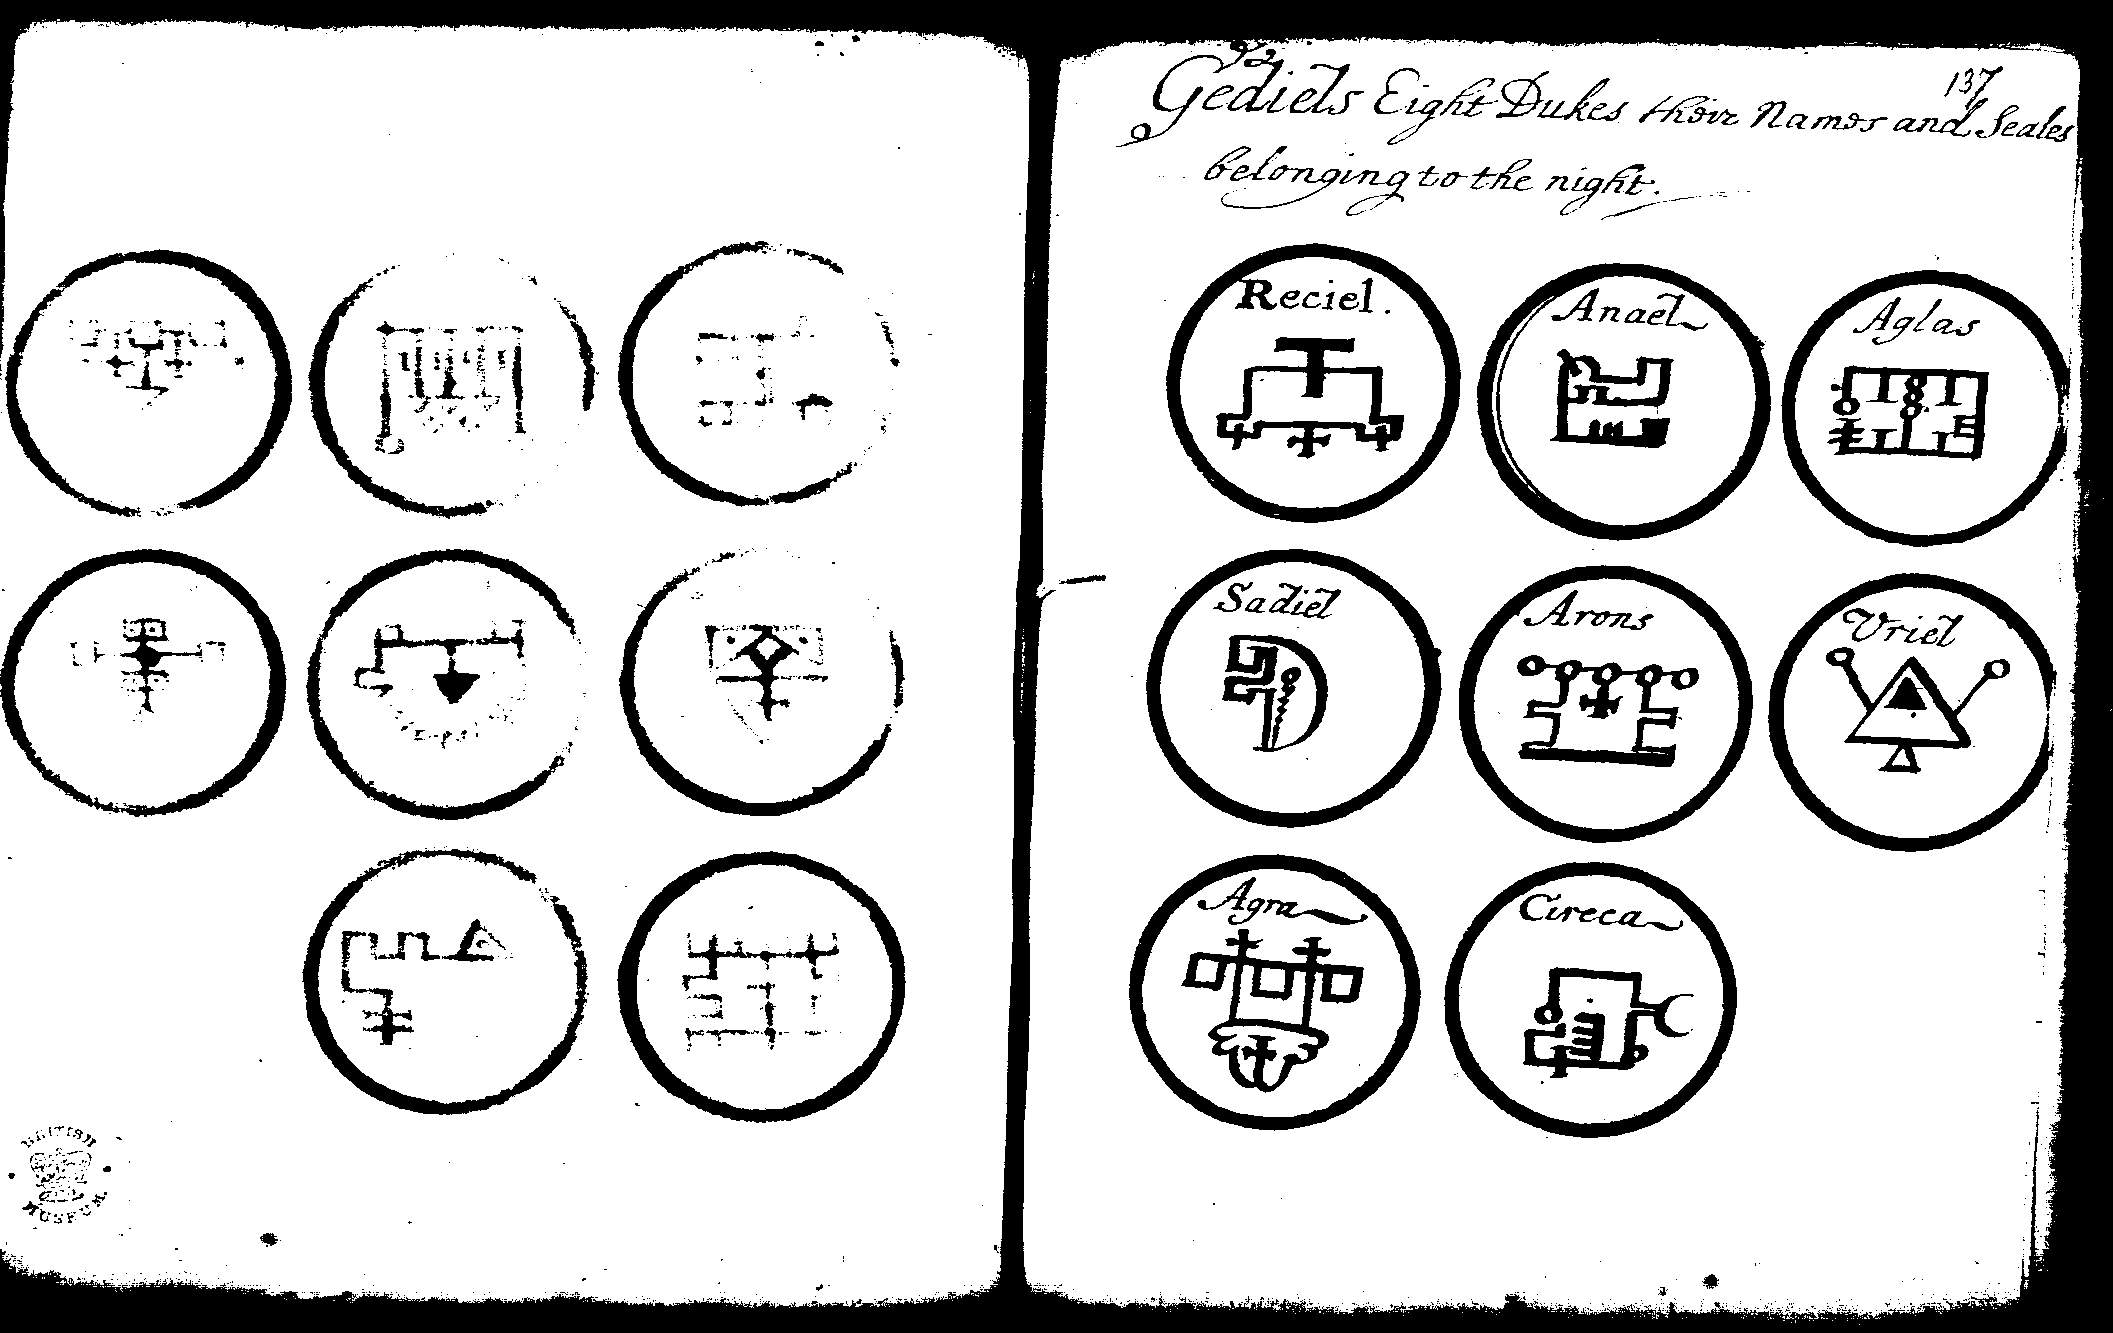 92
137
Gediels Eight Dukes their Names and Seales
belonging to the night.
Reciel.
Anael
Aglas
Sadiel
Arons
Vriel
Agra
Cireca
BRITISH
MUSEUM